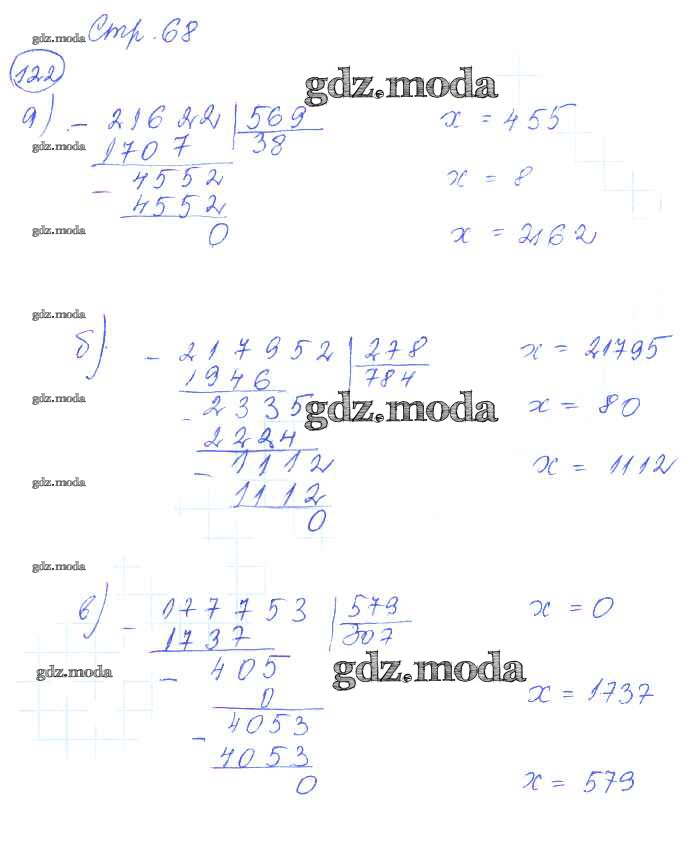 Стр. 68
gdz.moda
122
gdz.moda
а) - 21622 | 569 x = 455
gdz.moda 1707 38
- 4552 x = 8
4552
gdz.moda 0 x = 2162
gdz.moda
б) - 217952 | 278 x = 21795
1946 784
gdz.moda - 2335 gdz.moda x = 80
2224
- 1112 x = 1112
gdz.moda 1112
0
gdz.moda
в) - 177753 | 579 x = 0
1737 307
gdz.moda - 405 gdz.moda
0 x = 1737
- 4053
4053
0 x = 579